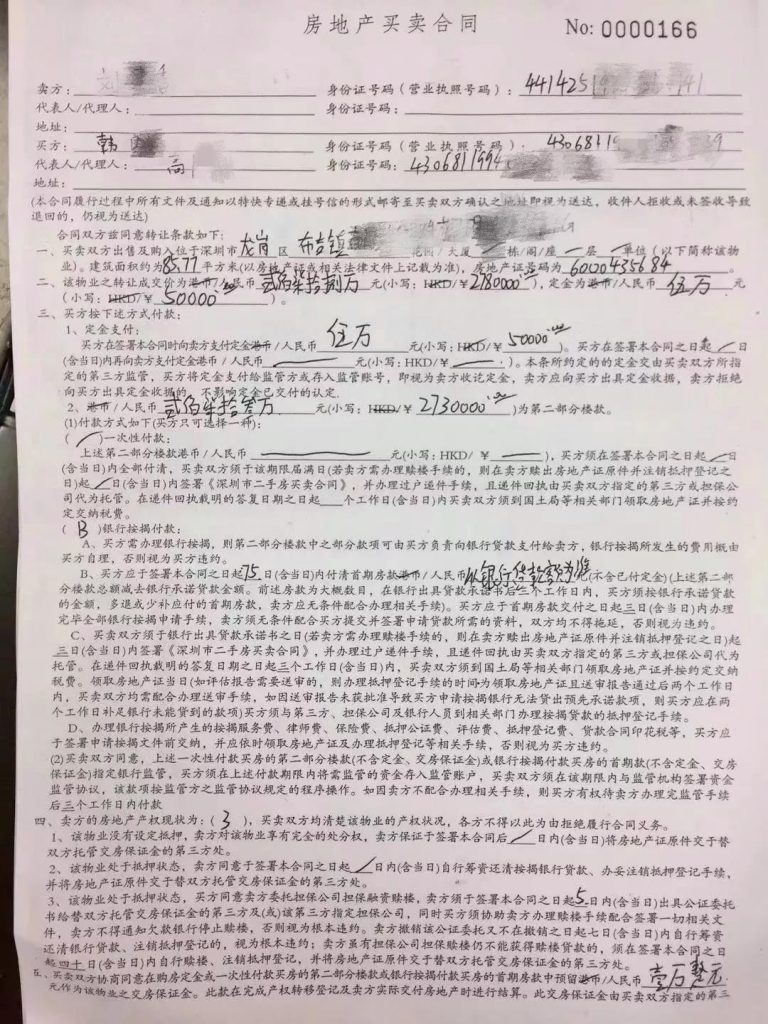 房地产买卖合同 No: 0000166
卖方: 刘 身份证号码（营业执照号码）: 4414251 141
代表人/代理人: 身份证号码:
地址:
买方: 韩 身份证号码（营业执照号码）: 4306811 39
代表人/代理人: 高 身份证号码: 4306811994
地址:
(本合同履行过程中所有文件及通知以特快专递或挂号信的形式邮寄至买卖双方确认之地址即视为送达，收件人拒收或未签收导致
退回的，仍视为送达)
合同双方致同意转让条款如下:
一、买卖双方出售及购入位于深圳市龙岗区布吉镇 花园/大厦 栋/阁/座 层 单位（以下简称该物
业）。建筑面积约为85.77平方米(以房地产证或相关法律文件上记载为准)，房地产证号码为6000435684。
二、该物业之转让成交价为港币/人民币贰佰柒拾捌万元(小写: HKD/￥2780000)，定金为港币/人民币伍万元
(小写: HKD/￥50000)。
三、买方按下述方式付款:
1、定金支付:
买方在签署本合同时向卖方支付定金港币/人民币伍万元(小写: HKD/￥50000)。买方在签署本合同之日起/日
(含当日)内再向卖方支付定金港币/人民币 元(小写: HKD/￥ )。本条所约定的的定金交由买卖双方所指
定的第三方监管，买方将定金支付给监管方或存入监管账号，即视为卖方收讫定金，卖方应向买方出具定金收据，卖方拒绝
向买方出具定金收据的，不影响定金已交付的认定.
2、港币/人民币贰佰柒拾叁万元(小写: HKD/￥2730000)为第二部分楼款。
(1)付款方式如下(买方只可选择一种):
( / )一次性付款:
上述第二部分楼款港币/人民币 元(小写: HKD/￥ )，买方须在签署本合同之日起/日
(含当日)内全部付清，买卖双方须于该期限届满日(若卖方需办理赎楼手续的，则在卖方赎出房地产证原件并注销抵押登记之
日)起/日(含当日)内签署《深圳市二手房买卖合同》，并办理过户递件手续，且递件回执由买卖双方指定的第三方或担保公
司代为托管。在递件回执载明的答复日期之日起 个工作日(含当日)内买卖双方须到国土局等相关部门领取房地产证并按约
定交纳税费。
( B )银行按揭付款:
A、买方需办理银行按揭，则第二部分楼款中之部分款项可由买方负责向银行贷款支付给卖方，银行按揭所发生的费用概由
买方自理，否则视为买方违约。
B、买方应于签署本合同之日起75日(含当日)内付清首期房款港币/人民币以银行贷款额为准元(不含已付定金)(上述第二部
分楼款总额减去银行承诺贷款金额。前述房款为大概数目，在银行出具贷款承诺书后三个工作日内，买方须按银行承诺贷款
的金额，多退或少补应付的首期房款，卖方应无条件配合办理相关手续)。买方应于首期房款交付之日起三日(含当日)内办理
完毕全部银行按揭申请手续，卖方须无条件配合买方提交并签署申请贷款所需的资料，双方均不得拖延，否则视为违约。
C、买卖双方须于银行出具贷款承诺书之日(若卖方需办理赎楼手续的，则在卖方赎出房地产证原件并注销抵押登记之日)起
三日(含当日)内签署《深圳市二手房买卖合同》，并办理过户递件手续，且递件回执由买卖双方指定的第三方或担保公司代为
托管。在递件回执载明的答复日期之日起三个工作日(含当日)内，买卖双方须到国土局等相关部门领取房地产证并按约定交纳
税费。领取房地产证当日(如评估报告需要送审的，则办理抵押登记手续的时间为领取房地产证且送审报告通过后两个工作日
内，买卖双方均需配合办理送审手续，如因送审报告未获批准导致买方申请按揭银行无法贷出预先承诺款项，则买方应在两
个工作日补足银行未能贷到的款项)买方须与第三方、担保公司及银行人员到相关部门办理按揭贷款的抵押登记手续。
D、办理银行按揭所产生的按揭服务费、律师费、保险费、抵押公证费、评估费、抵押登记费、贷款合同印花税等，买方应
于签署申请按揭文件前交纳，并应依时领取房地产证及办理抵押登记等相关手续，否则视为买方违约。
(2)买卖双方同意，上述一次性付款买房的第二部分楼款(不含定金、交房保证金)或银行按揭付款买房的首期款(不含定金、交房
保证金)指定银行监管，买方须在上述付款期限内将需监管的资金存入监管账户，买卖双方须在该期限内与监管机构签署资金
监管协议，该款项按监管方之监管协议规定的程序操作。如因卖方不配合办理相关手续，则买方有权待卖方办理完监管手续
后三个工作日内付款
四、卖方的房地产产权现状为:( 3 )，买卖双方均清楚该物业的产权状况，各方不得以此为由拒绝履行合同义务。
1、该物业没有设定抵押，卖方对该物业享有完全的处分权，卖方保证于签署本合同后/日内(含当日)将房地产证原件交于替
双方托管交房保证金的第三方处。
2、该物业处于抵押状态，卖方同意于签署本合同之日起/日内(含当日)自行筹资还清按揭银行贷款、办妥注销抵押登记手续，
并将房地产证原件交于替双方托管交房保证金的第三方处。
3、该物业处于抵押状态，买方同意卖方委托担保公司担保融资赎楼，卖方须于签署本合同之日起5日内(含当日)出具公证委托
书给替双方托管交房保证金的第三方及(或)该第三方指定担保公司，同时买方须协助卖方办理赎楼手续配合签署一切相关文
件，卖方不得通知欠款银行停止赎楼，否则视为根本违约。卖方撤销该公证委托又不在撤销之日起七日(含当日)内自行筹资
还清银行贷款、注销抵押登记的，视为根本违约；卖方虽有担保公司担保赎楼仍不能获得赎楼贷款的，须在签署本合同之日
起四十日(含当日)内自行赎楼、注销抵押登记，并将房地产证原件交于替双方托管交房保证金的第三方处。
五、买卖双方协商同意在购房定金或一次性付款买房的第二部分楼款或银行按揭付款买房的首期房款中预留港币/人民币壹万整元
元作为该物业之交房保证金。此款在完成产权转移登记及卖方实际交付房地产时进行结算。此交房保证金由买卖双方指定的第三